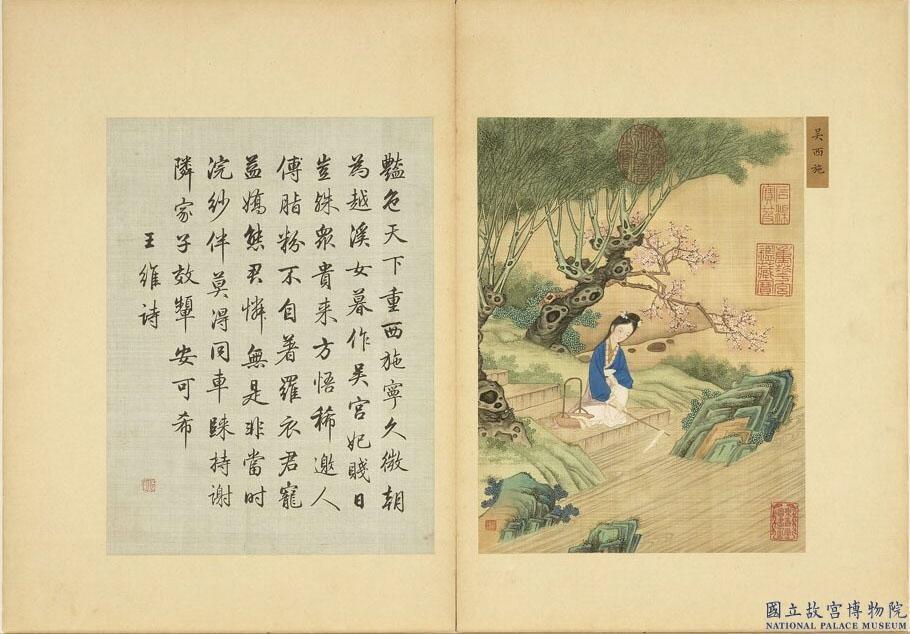 吳西施
石渠寶笈
重華宮鑑藏寶
豔色天下重西施寧久微朝
為越溪女暮作吳宮妃賤日
豈殊眾貴來方悟稀邀人
傅脂粉不自著羅衣君寵
益嬌態君憐無是非當时
浣紗伴莫得同車歸持謝
隣家子效顰安可希
王維詩
國立故宮博物院
NATIONAL PALACE MUSEUM